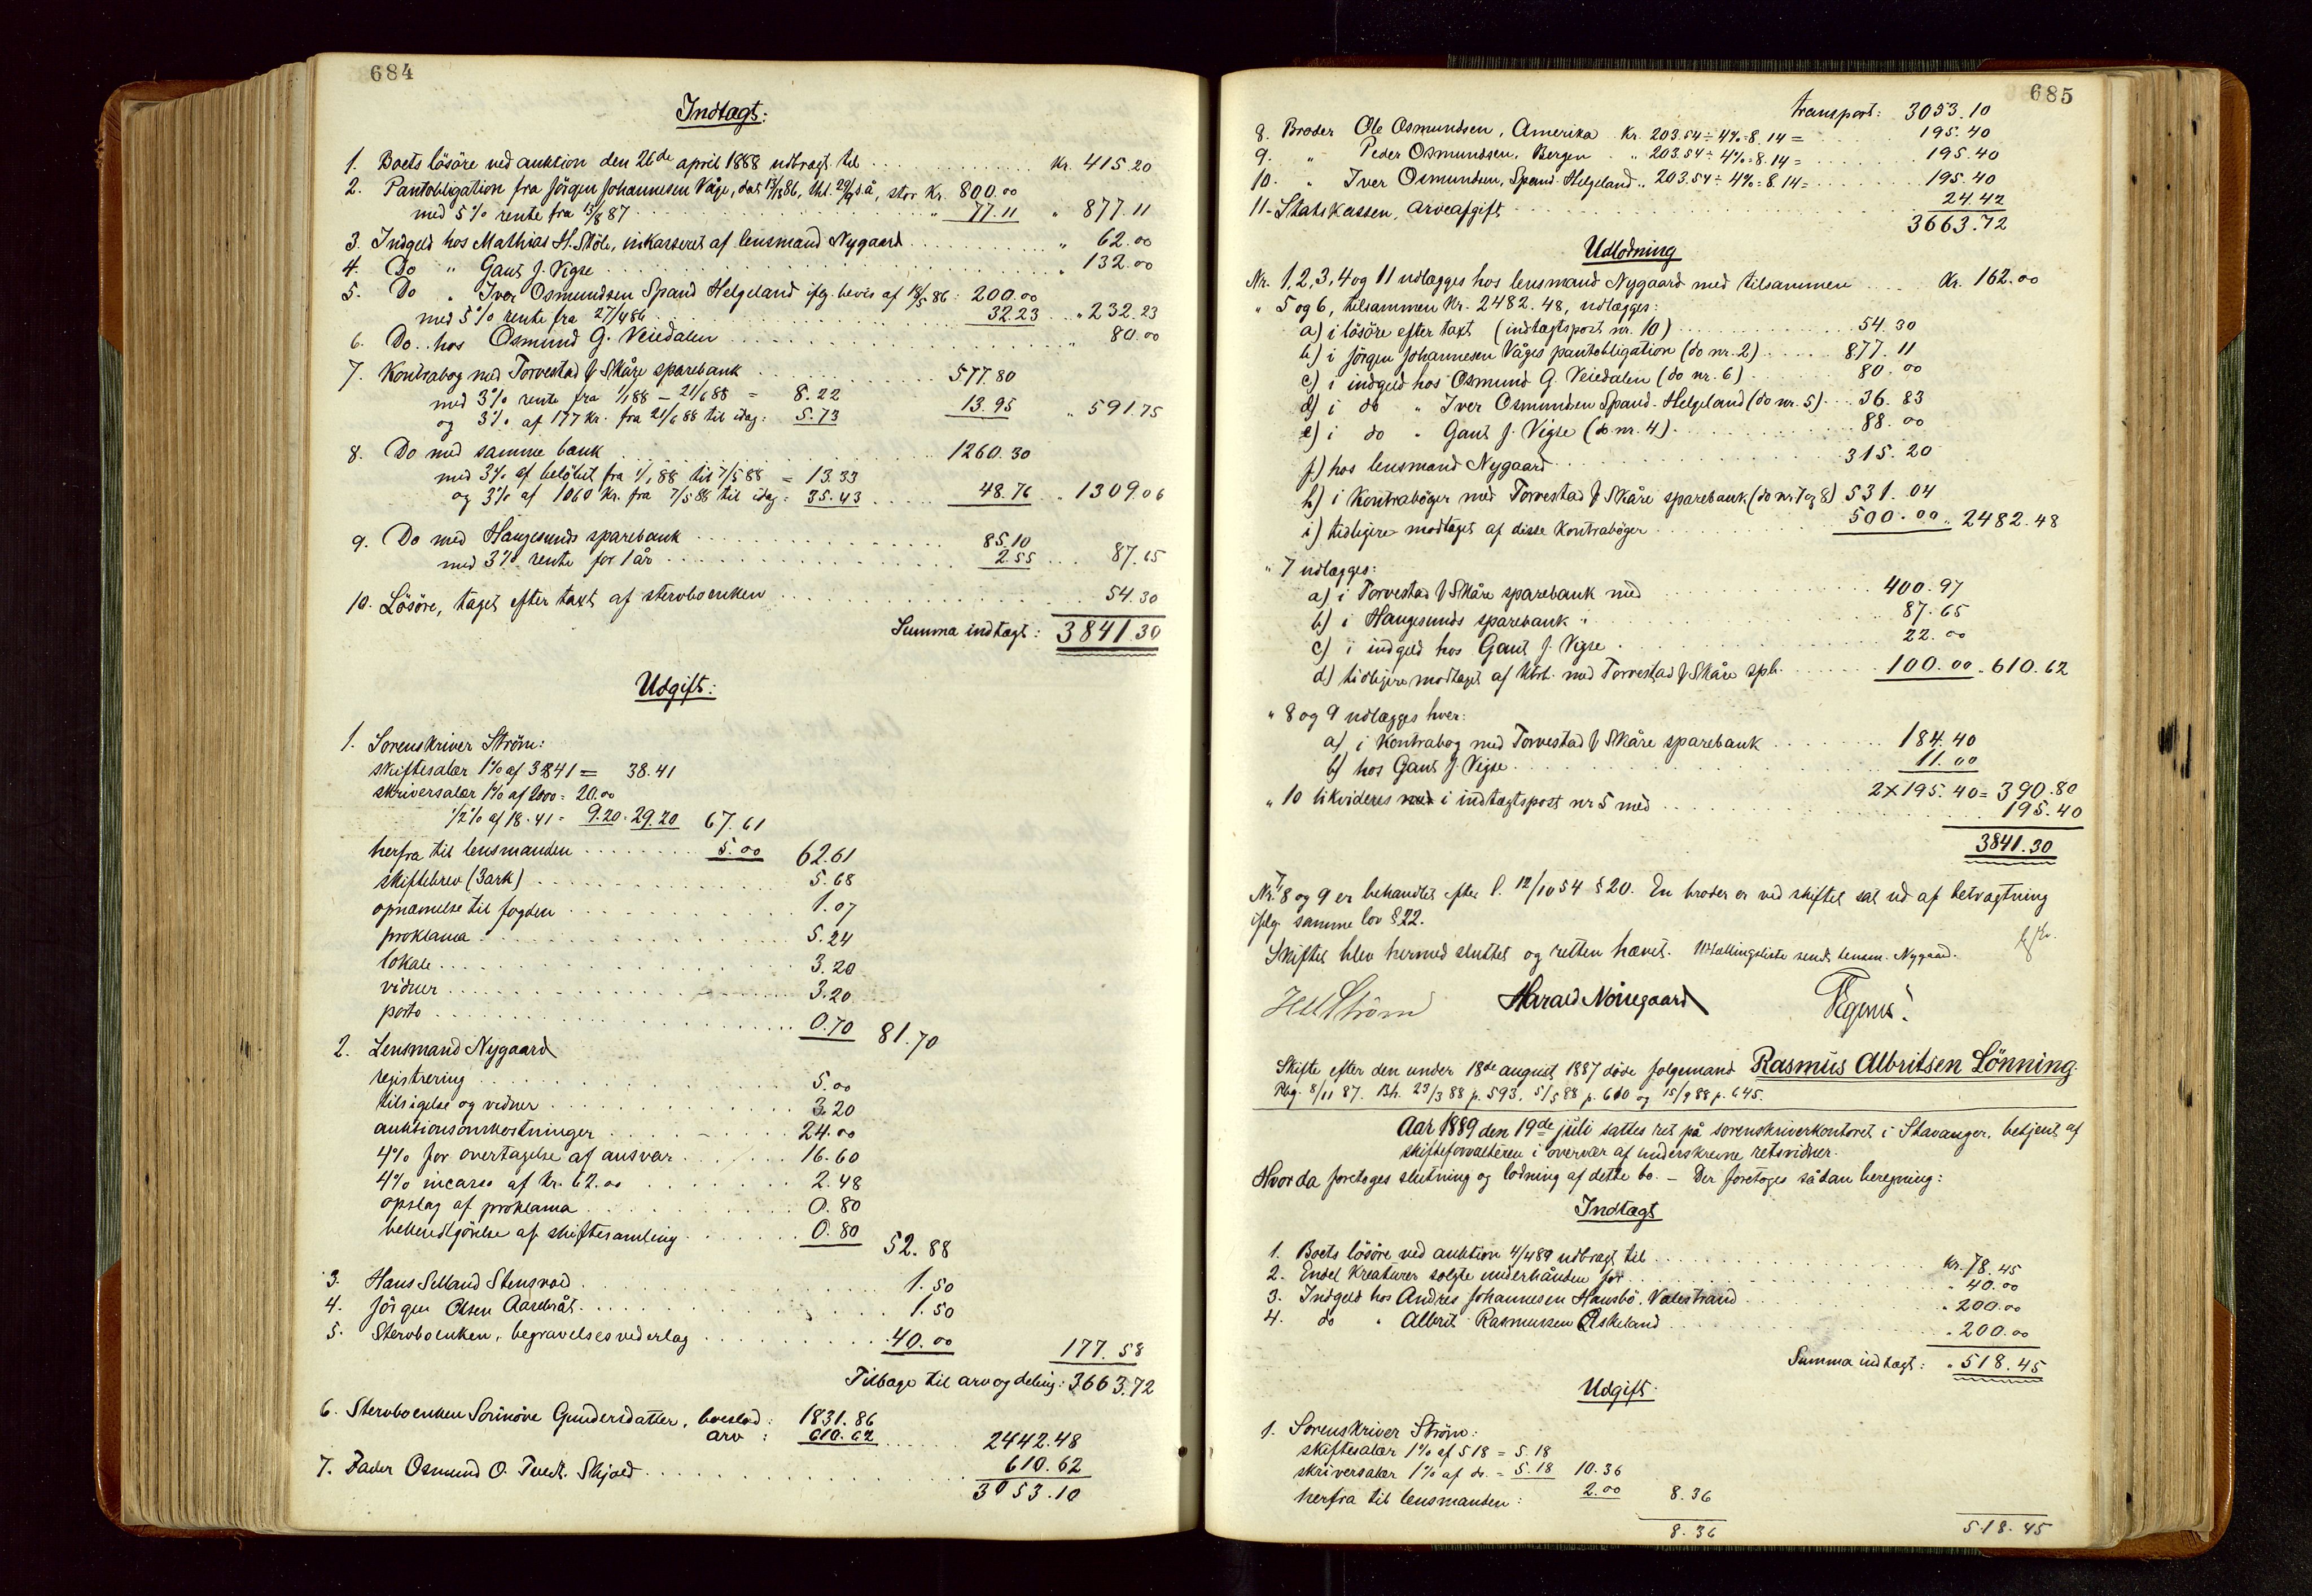 684
Indtægt:
1. Boets lösöre ved auktion den 26de april 1888 udbragt til Kr. 415.20
2. Pantobligation fra Jörgen Johannesen Våge, dat. 13/8 86, thl. 29/9 s.å., stor Kr. 800.00
med 5% rente fra 13/8 87 " 77.11 " 877.11
3. Indgeld hos Mathias H. Stöle, inkasseret af lensmand Nygaard " 62.00
4. Do " Gaut J. Vigse " 132.00
5. Do " Iver Osmundsen Spand Helgeland ifg. bevis af 18/5 86: 200.00
med 5% rente fra 27/4 86 32.23 " 232.23
6. Do hos Osmund G. Veiedalen " 80.00
7. Kontrabog med Torvestad & Skåre sparebank 577.80
med 3% rente fra 1/1 88 - 21/6 88 = 8.22
og 3% af 177 kr. fra 21/6 88 til idag: 5.73 13.95 " 591.75
8. Do med samme bank 1260.30
med 3% af belöbet fra 1/1 88 til 7/5 88 = 13.33
og 3% af 1060 Kr. fra 7/5 88 til idag = 35.43 48.76 " 1309.06
9. Do med Haugesunds sparebank 85.10
med 3% rente for 1 år 2.55 87.65
10. Lösöre, taget efter taxt af stervboenken 54.30
Summa indtægt: 3841.30
Udgift:
1. Sorenskriver Ström:
skiftesalær 1% af 3841 = 38.41
skriversalær 1% af 2000 = 20.00
1/2% af 18.41 = 9.20 . 29.20 67.61
herfra til lensmanden 5.00 62.61
skiftebrev (3 ark) 5.68
opnævnelse til fogden 1.07
proklama 5.24
lokale 3.20
vidner 3.20
porto 0.70 81.70
2. Lensmand Nygaard
registrering 5.00
tilsigelse og vidner 3.20
auktionsomkostninger 24.00
4% for overtagelse af ansvar 16.60
4% incasso af Kr. 62.00 2.48
opslag af proklama 0.80
bekjendtgörelse af skiftesamling 0.80 52.88
3. Hans Selland Stensvold 1.50
4. Jörgen Olsen Aasebråt 1.50
5. Stervboenken, begravelsesvederlag 40.00 177.58
Tilbage til arv og deling: 3663.72
6. Stervboenken Sörinöve Gundersdatter, boeslod: 1831.86
arv: 610.62 2442.48
7. Fader Osmund O. Tvedt. Skjold 610.62
3053.10
685
Transport: 3053.10
8. Broder Ole Osmundsen, Amerika Kr. 203.54 ÷ 4% = 8.14 = 195.40
9. " Peder Osmundsen, Bergen " 203.54 ÷ 4% = 8.14 = 195.40
10. " Iver Osmundsen, Spand-Helgeland " 203.54 ÷ 4% = 8.14 = 195.40
11. Statskassen, arveafgift 24.42
3663.72
Udlodning
Nr. 1, 2, 3, 4 og 11 udlægges hos lensmand Nygaard med tilsammen Kr. 162.00
" 5 og 6, tilsammen Kr. 2482.48, udlægges:
a) i lösöre efter taxt (indtægtspost nr. 10) 54.30
b) i Jörgen Johannesen Våges pantobligation (do nr. 2) 877.11
c) i indgeld hos Osmund G. Veiedalen (do nr. 6) 80.00
d) i do " Iver Osmundsen Spand-Helgeland (do nr. 5) 36.83
e) i do " Gaut J. Vigse (do nr. 4) 88.00
f) hos lensmand Nygaard 315.20
h) i Kontraböger med Torvestad & Skåre sparebank (do nr. 7 og 8) 531.04
i) tidligere modtaget af disse Kontraböger 500.00 " 2482.48
" 7 udlægges:
a) i Torvestad & Skåre sparebank med 400.97
b) i Haugesunds sparebank " 87.65
c) i indgeld hos Gaut J. Vigse 22.00
d) tidligere modtaget af Ktrb. med Torvestad & Skåre spb. 100.00 " 610.62
" 8 og 9 udlægges hver:
a) i Kontrabog med Torvestad & Skåre sparebank 184.40
b) hos Gaut J. Vigse 11.00
2 x 195.40 = 390.80
" 10 likvideres med i indtægtspost nr 5 med 195.40
3841.30
Nr. 7, 8 og 9 er behandlet efter l. 12/10 54 § 20. En broder er ved skiftet sat ud af betragtning
ifølg. samme lov § 22.
Skiftet blev hermed sluttet og retten hævet. Uttællingsliste sendt lensm. Nygaard.
Ström Harald Nörregaard Tegner
Skifte efter den under 18de august 1887 döde folgemand Rasmus Albritsen Lönning.
Rbg. 8/11 87. Bh. 23/3 88 p. 593, 5/5 88 p. 610 og 15/9 88 p. 645.
Aar 1889 den 19de juli sattes ret på sorenskriverkontoret i Stavanger, betjent af
skifteforvalteren i overvær af underskrevne retsvidner.
Hvor da foretoges slutning og lodning af dette bo. – Der foretoges sådan beregning:
Indtægt
1. Boets lösöre ved auktion 4/4 89 udbragt til Kr. 78.45
2. Endel Kreaturer solgte underhånden for " 40.00
3. Indgeld hos Andres Johannesen Hausbö. Valestrand " 200.00
4. do " Albrit Rasmussen Eskeland " 200.00
Summa indtægt: " 518.45
Udgift:
1. Sorenskriver Ström:
skiftesalær 1% af 518 = 5.18
skriversalær 1% af do. = 5.18 10.36
herfra til lensmanden: 2.00 8.36
8.36 518.45